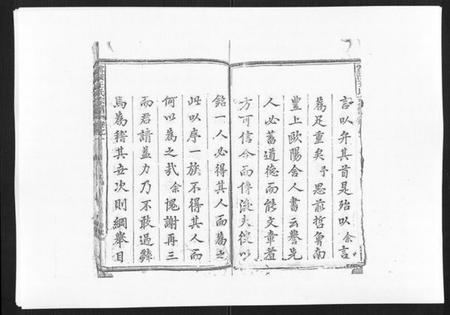 言以弁其首是殆以余言
為足重矣予思前哲曾南
豐上歐陽舍人書云譽先
人必蓄道德而能文章者
方可信今而傳後夫從以
銘一人必得其人而為之
此以序一族不得其人而
何以為之哉余愧謝再三
而君請益力乃不敢過辭
焉為稽其世次則綱舉目